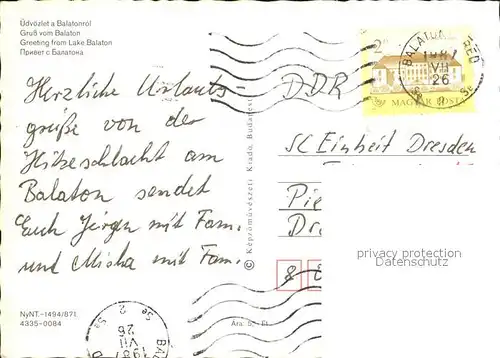 Üdvözlet a Balatonról
Gruß vom Balaton
Greeting from Lake Balaton
Привет с Балатона
Herzliche Urlaubs-
grüße von der
Hitzeschlacht am
Balaton sendet
Euch Jürgen mit Fam.
und Mischa mit Fam.
NyNT.–1494/871.
4335-0084
© Képzőművészeti Kiadó, Budapest
Ára: 5,- Ft
DDR
SC Einheit Dresden
Pie
Dr
8
privacy protection
Datenschutz
2
MAGYAR POSTA
BALATON
RED
1987
VII
26
Se
1987
VII
26
Se